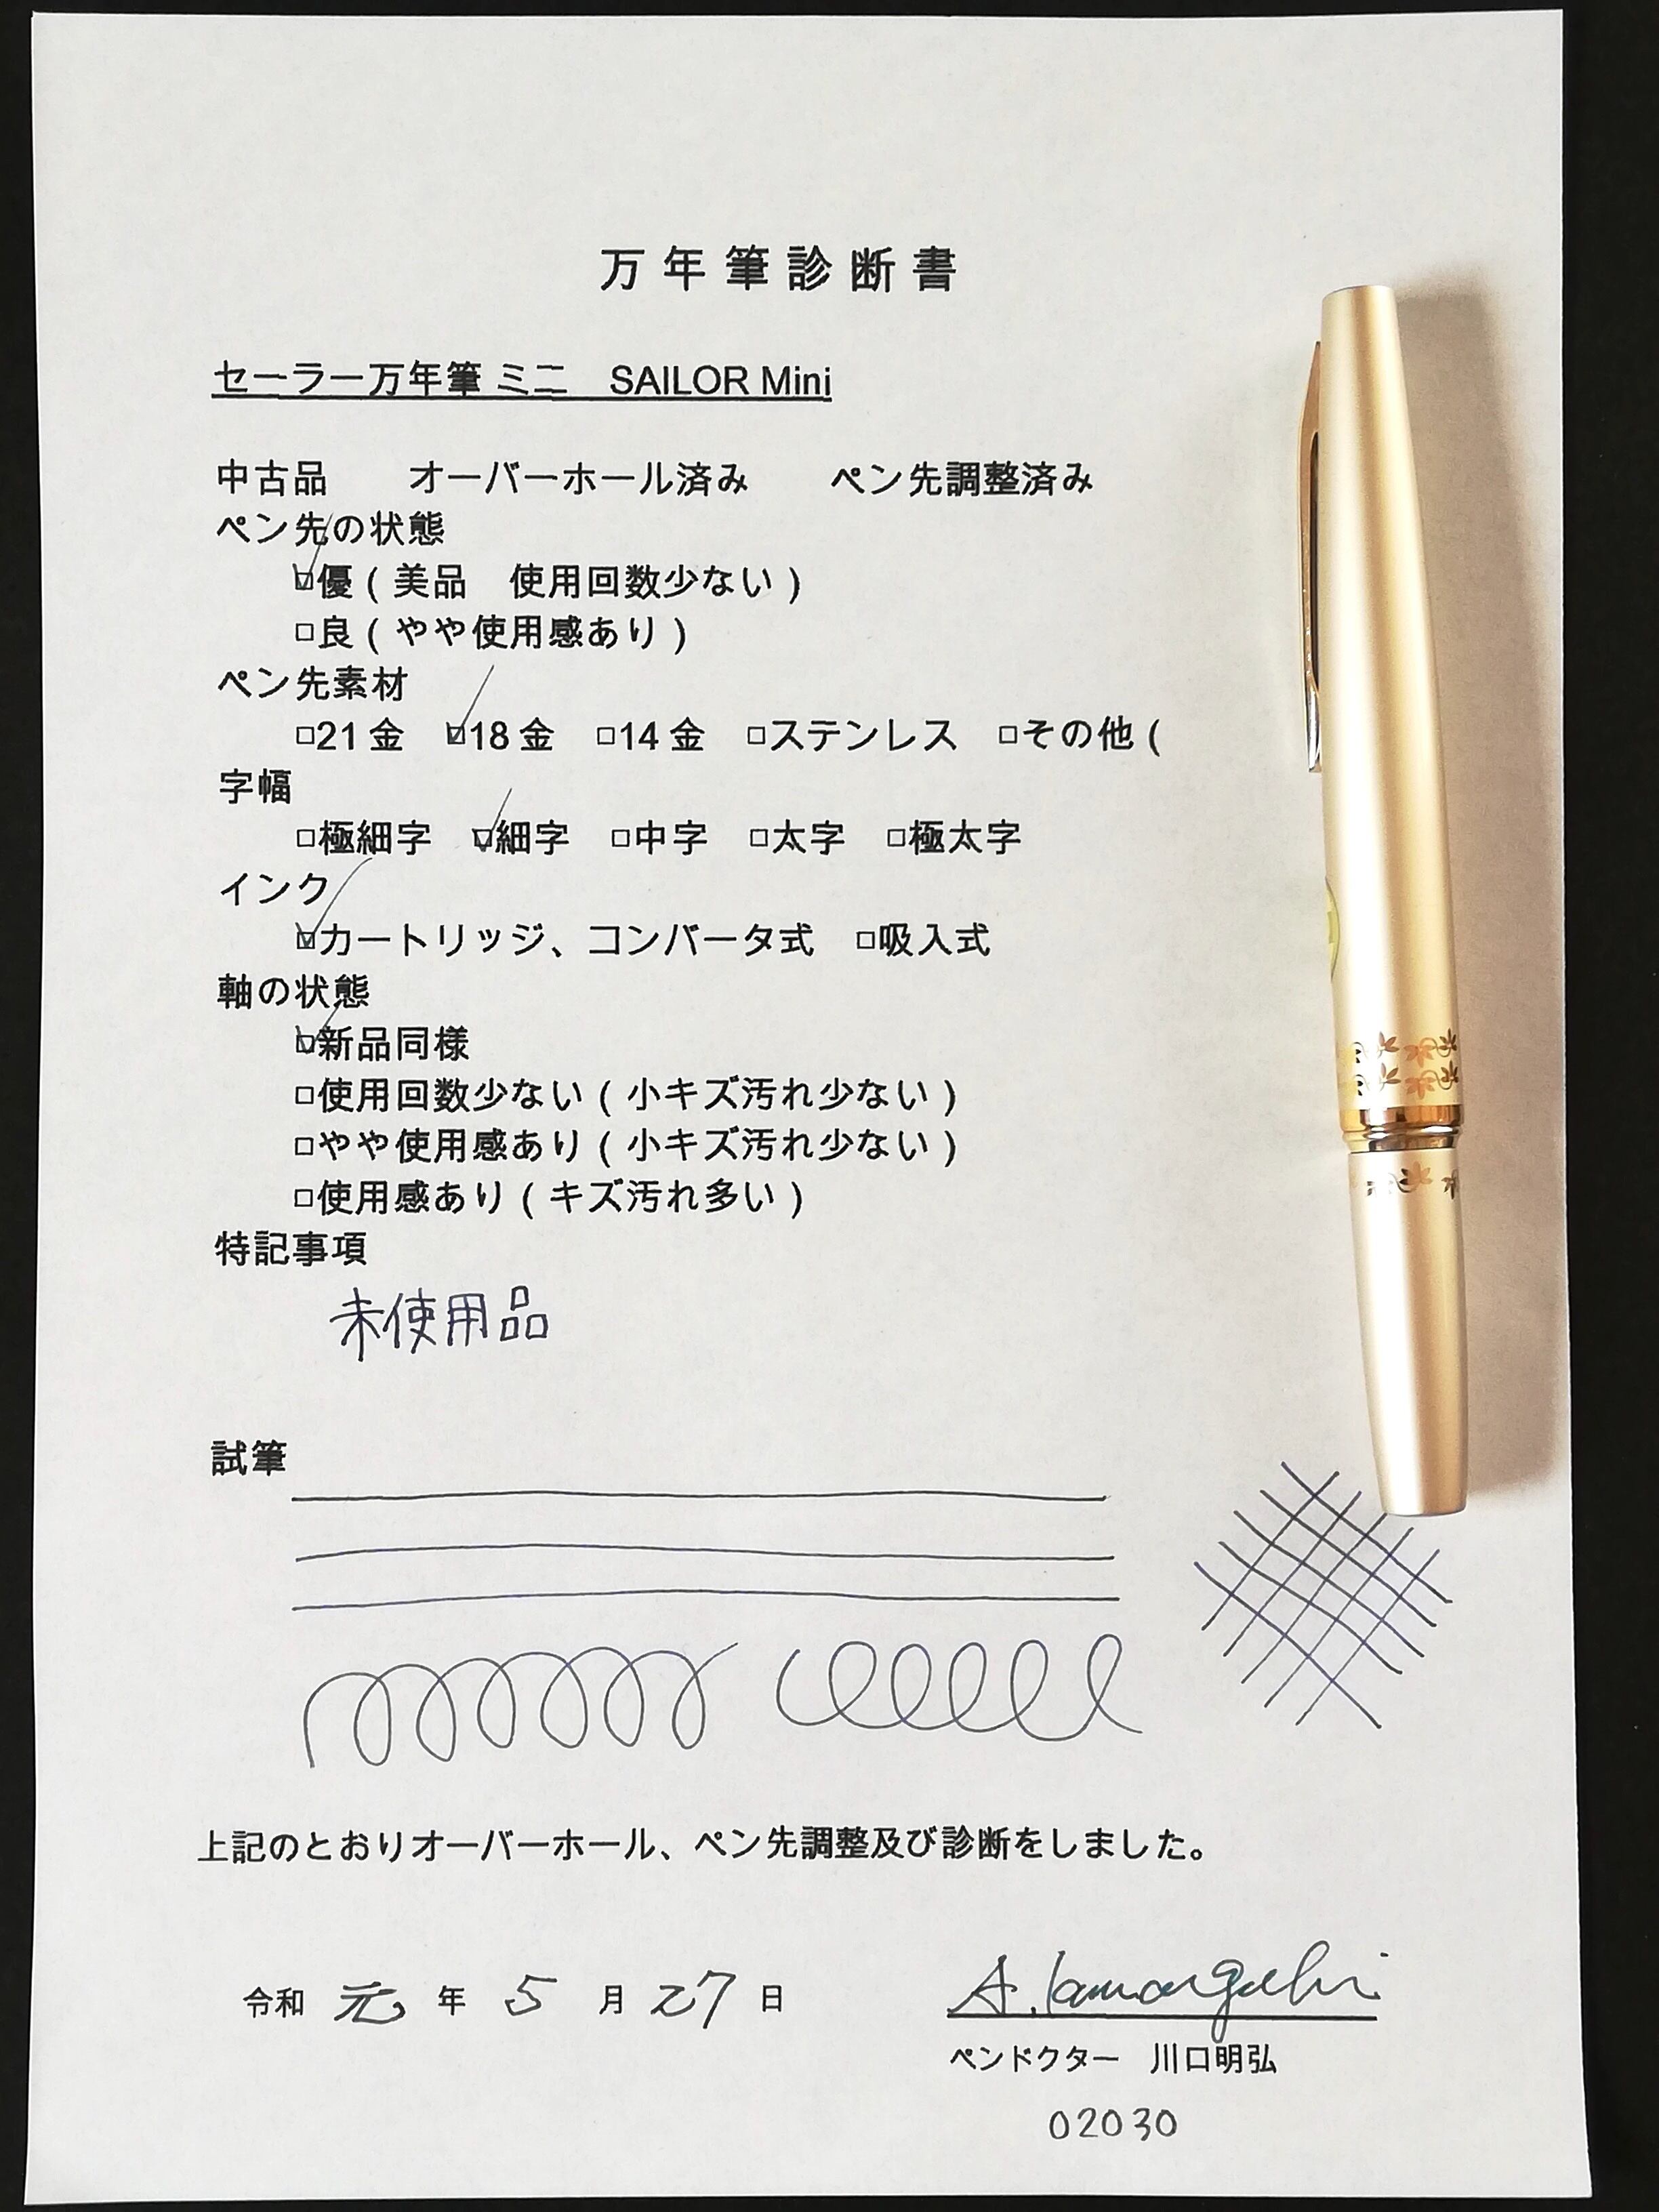 万年筆診断書
セーラー万年筆 ミニ　SAILOR Mini
中古品　　オーバーホール済み　　ペン先調整済み
ペン先の状態
☑優（美品　使用回数少ない）
□良（やや使用感あり）
ペン先素材
□21金　☑18金　□14金　□ステンレス　□その他（
字幅
□極細字　☑細字　□中字　□太字　□極太字
インク
☑カートリッジ、コンバータ式　□吸入式
軸の状態
☑新品同様
□使用回数少ない（小キズ汚れ少ない）
□やや使用感あり（小キズ汚れ少ない）
□使用感あり（キズ汚れ多い）
特記事項
未使用品
試筆
上記のとおりオーバーホール、ペン先調整及び診断をしました。
令和 元 年 5 月 27 日
ペンドクター　川口明弘
02030